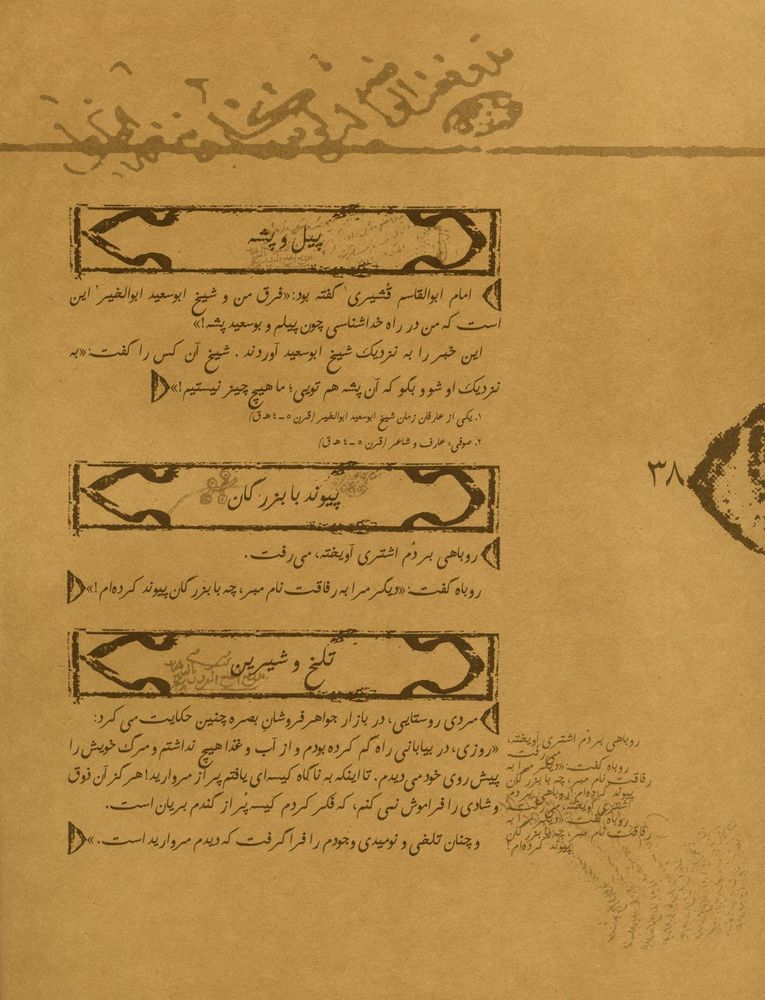 پیل و پشه
امام ابوالقاسم قُشیری۱ گفته بود:«فرق من و شیخ ابوسعید ابوالخیر۲ این
است که من در راه خداشناسی چون پیلم و بوسعید پشه!»
این خبر را به نزدیک شیخ ابوسعید آوردند. شیخ آن کس را گفت:«به
نزدیک او شو و بگو که آن پشه هم تویی؛ ما هیچ چیز نیستیم!»
۱. یکی از عارفان زمان شیخ ابوسعید ابوالخیر (قرن ۵-٤ ه‍.ق)
۲. صوفی، عارف و شاعر (قرن ۵-٤ ه‍.ق)
۳۸
پیوند با بزرگان
روباهی بر دُم اشتری آویخته، می‌رفت.
روباه گفت:«دیگر مرا به رفاقت نام مبر، چه با بزرگان پیوند کرده‌ام!»
تلخ و شیرین
مردی روستایی، در بازار جواهرفروشان بصره چنین حکایت می کرد:
«روزی، در بیابانی راه گم کرده بودم و از آب و غذا هیچ نداشتم و مرگ خویش را
پیش روی خود می دیدم. تا اینکه به ناگاه کیسه‌ای یافتم پر از مروارید! هرگز آن ذوق
و شادی را فراموش نمی کنم، که فکر کردم کیسه پُر از گندم بریان است.
و چنان تلخی و نومیدی وجودم را فرا گرفت که دیدم مروارید است.»
روباهی بر دُم اشتری آویخته،
می‌رفت
روباه گفت:«دیگر مرا به
رفاقت نام مبر، چه با بزرگان
پیوند کرده‌ام! روباهی بر دم
اشتری آویخته، می‌رفت
روباه گفت:«دیگر مرا به
رفاقت نام مبر، چه با بزرگان
پیوند کرده‌ام!